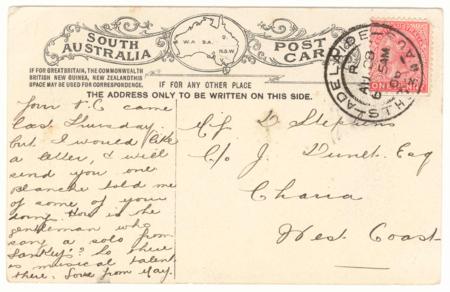 SOUTH AUSTRALIA
W.A.
S.A.
Q.
N.S.W.
V.
POST CARD
IF FOR GREAT BRITAIN, THE COMMONWEALTH
BRITISH NEW GUINEA, NEW ZEALAND THIS
SPACE MAY BE USED FOR CORRESPONDENCE.
IF FOR ANY OTHER PLACE
THE ADDRESS ONLY TO BE WRITTEN ON THIS SIDE.
ADELAIDE
AU 28
STH AUS
Your P.C came
last Thursday,
but I would like
a letter, & will
send you one
Blanche told me
of some of your
doing. How is the
gentleman who
sang a solo from
Sankey's? So there
is musical talent
there. Love from May.
D Stephens
C/o J. Esq
West Coast